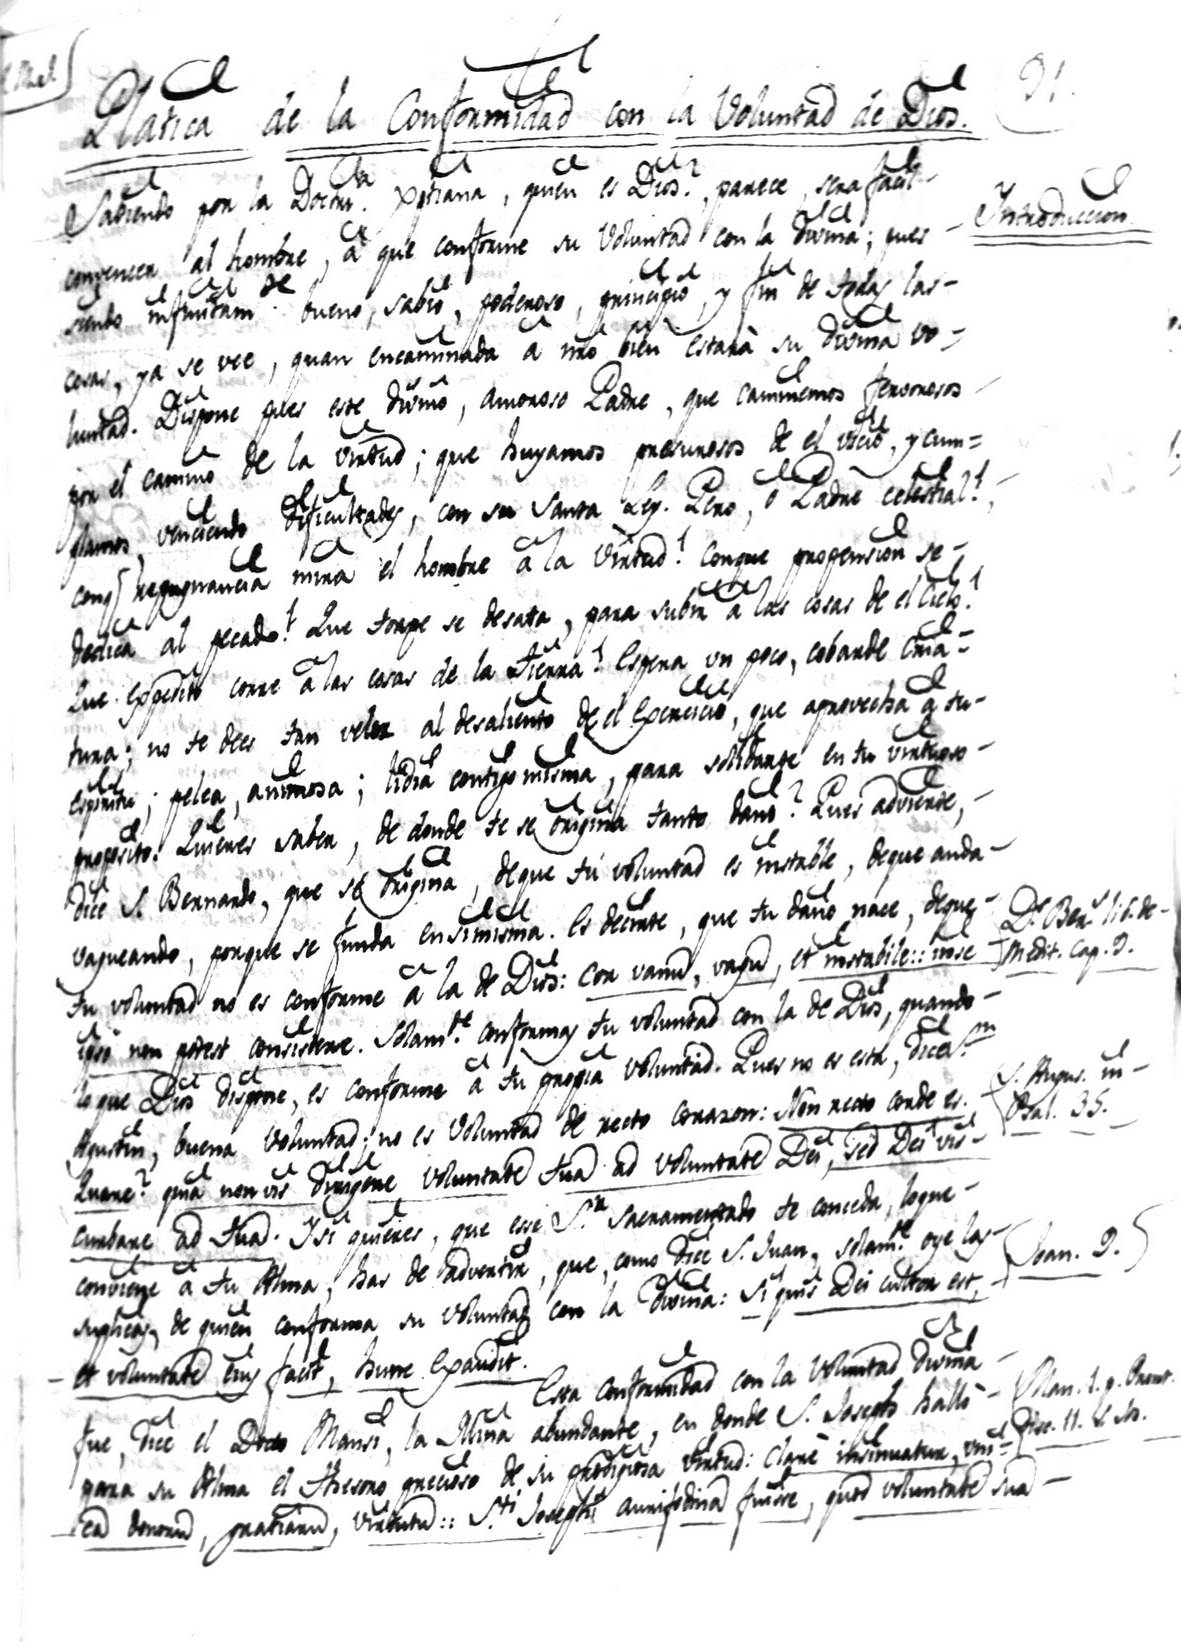 91.
Platica de la Conformidad con la Voluntad de Dios.
Sabiendo por la Doctrª. Xptiana, quien es Dios?, parece, sera facil
Introduccion.
convencer al hombre, à que conforme su Voluntad con la divina; pues
siendo infinitamte. bueno, sabio, poderoso, principio, y fin de todas las
cosas, ya se vee, quan encaminada à nrô bien estarà su divina vo-
luntad. Dispone pues este divino, amoroso Padre, que caminemos fervorosos
por el camino de la virtud; que huyamos presurosos de el vicio, y cum=
plamos, venciendo dificultades, con su Santa Ley. Pero, o Padre celestial!,
conq repugnancia mira el hombre à la virtud! Conque propension se
dedica al pecado! Que torpe se desata, para subir à las cosas de el Cielo!
Que expedito corre à las cosas de la tierra! Espera un poco, cobarde Cria=
tura; no te dees tan veloz al desaliento de el Exercicio, que aprovecha à tu
espiritu; pelea, animosa; lidia contigo misma, para solidarte en tu virtuoso
proposito. Quieres saber, de donde te se origina tanto daño? Pues advierte,
dice S. Bernardo, que se origina, deque tu voluntad es instable, deque anda
vagueando, porque se funda ensimisma. Es decirte, que tu daño nace, deque
Dˢ. Berˢ. lib. de
Medit. Cap. 9.
tu voluntad no es conforme à la de Dios: Cor vanū, vagū, et instabile:: inse
ipso non potest consistere. Solamte. conformas tu voluntad con la de Dios, quando
lo que Dios dispone, es conforme à tu propia voluntad. Pues no es esta, dice Sn.
S. Augus. in
Psal. 35.
Agustin, buena voluntad; no es Voluntad de recto corazon: Non recto corde es.
Quare? quia non vis dirigere voluntatē tuā ad voluntatē Dei, sed Dei vis
curbare ad tuā. Y si quieres, que esse Sr. Sacramentado te conceda, loque
conviene à tu Alma, has de advertir, que, como dice S. Juan, solamte. oye las
Joan. 9.
suplicas, de quien conforma su voluntad con la divina: Si quis Dei cultor est,
et voluntatē eius facit, hunc exaudit.
Esta conformidad con la Voluntad divina
fue, dice el Docto Mansi, la Mina abundante, en donde S. Joseph hallò
Disc. 11.
para su Alma el thesoro precioso de su prodigiosa virtud: Clarè insinuatur,
donorū, gratiarū, virtutū:: Sti. Josephi aurifodinā fuisse, quod voluntatē suā